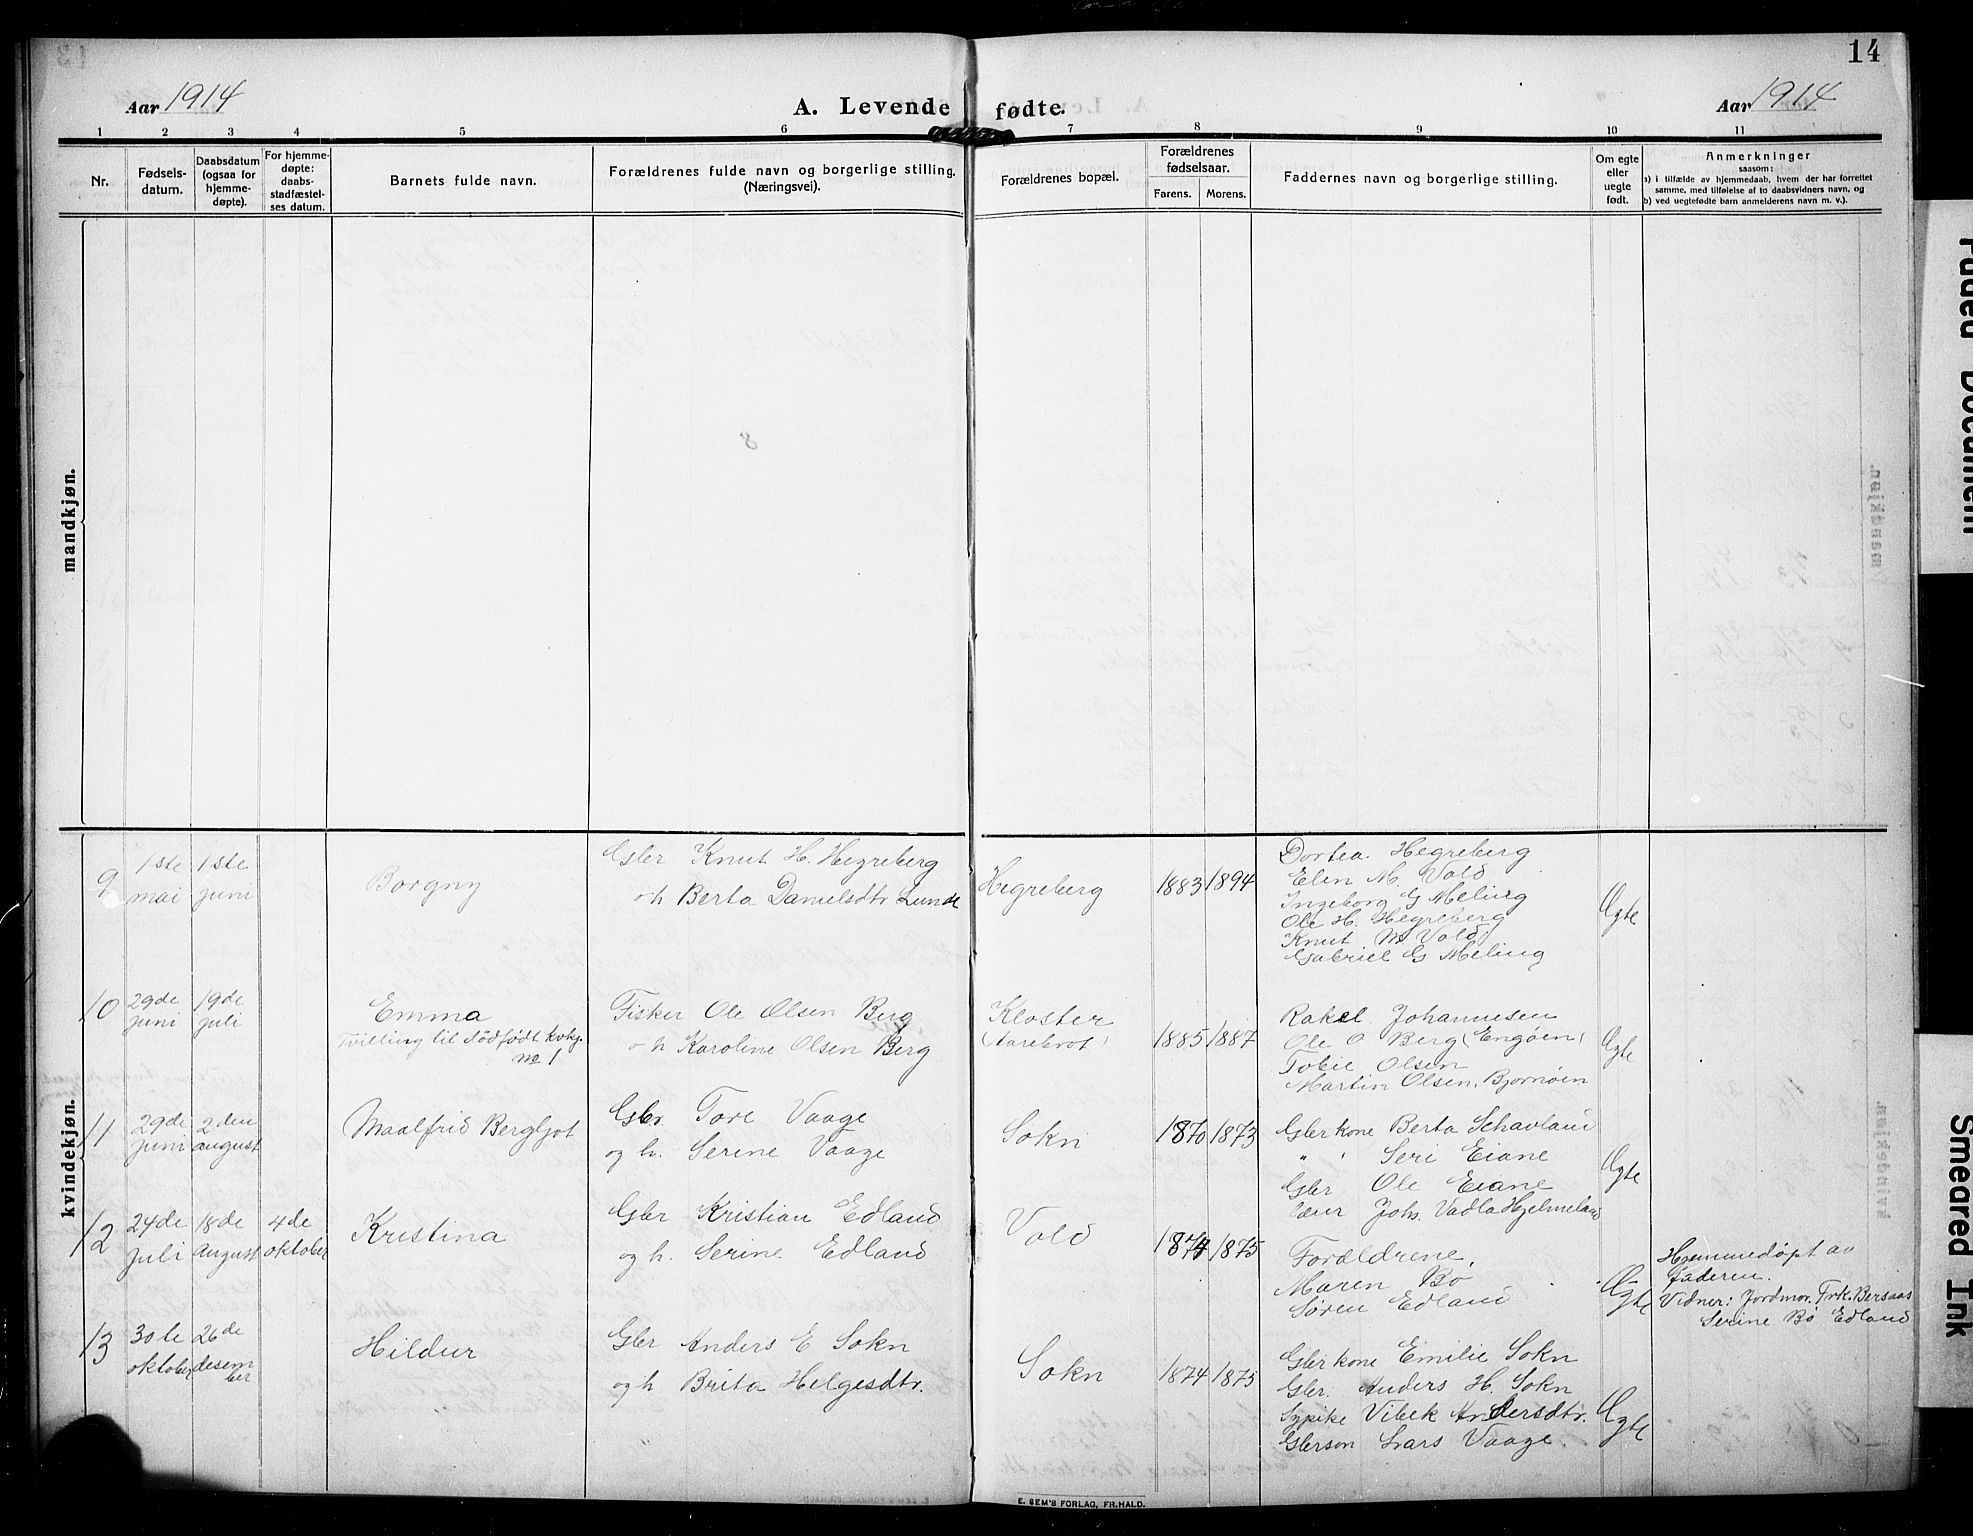 14
Aar 1914
A. Levende fødte.
Aar 1914
1 2 3 4 5 6 7 8 9 10 11
Nr.
Fødsels-
datum.
Daabsdatum
(ogsaa for
hjemme-
døpte).
For hjemme-
døpte:
daabs-
stadfæstel-
ses datum.
Barnets fulde navn.
Forældrenes fulde navn og borgerlige stilling.
(Næringsvei).
Forældrenes bopæl.
Forældrenes
fødselsaar.
Farens. Morens.
Faddernes navn og borgerlige stilling.
Om egte
eller
uegte
født.
Anmerkninger
saasom:
a) i tilfælde av hjemmedaab, hvem der har forrettet
samme, med tilføielse af to daabsvidners navn, og
b) ved uegtefødte barn anmelderens navn m. v.).
mandkjøn.
kvindekjøn.
9
1ste
mai
1ste
juni
Borgny
Gbr Knut H. Hegreberg
o h Berta Danielsdtr Lunde
Hegreberg
1883 1894
Dortea Hegreberg
Elen M. Vold
Ingeborg G Meling
Ole H. Hegreberg
Knut M Vold
Gabriel G Meling
Ægte
10
29de
juni
19de
juli
Emma
Tvilling til dødfødt kvkj.
no 1
Fisker Ole Olsen Berg
o h Karoline Olsen Berg
Kloster
(Aarebrot)
1885 1887
Rakel Johannesen
Ole O Berg (Engøen)
Tobie Olsen
Martin Olsen, Bjørnøen
Ægte
11
29de
juni
2den
august
Maalfrid Bergljot
Gbr. Tore Vaage
og h. Serine Vaage
Sokn
1870 1873
Gbrkone Berta Schavland
" " Seri Eiane
Gbr Ole Eiane
Lærer Joh. Vadla Hjelmeland
Ægte
12
24de
juli
18de
august
4de
oktober
Kristina
Gbr Kristian Edland
og h. Serine Edland
Vold
1874 1875
Forældrene,
Maren Bø
Søren Edland
Ægte
Hjemmedøpt av
faderen.
Vidner: Jordmor. Frk. Bersaas
Serine Bø Edland
13
30te
oktober
26de
desem
ber
Hildur
Gbr Anders E Sokn
og h Brita Helgesdtr.
Sokn
1874 1875
Gbrkone Emilie Sokn
Gbr. Anders H. Sokn
Sypike Vibek Andersdtr.
Gbrson Lars Vaage.
Ægte
E. SEM'S FORLAG, FR.HALD.
Faded Document
Smeared Ink